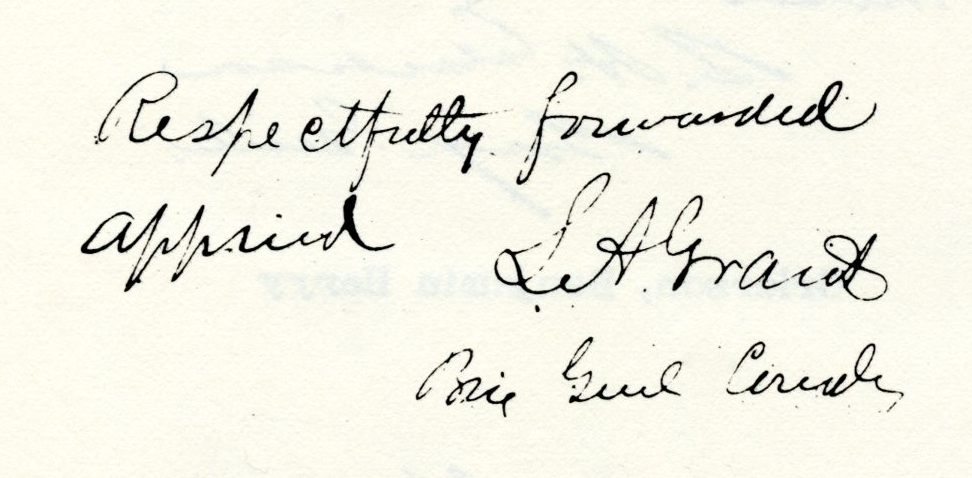 Respectfully forwarded
approved
L. A. Grant
Brig Genl Comdg